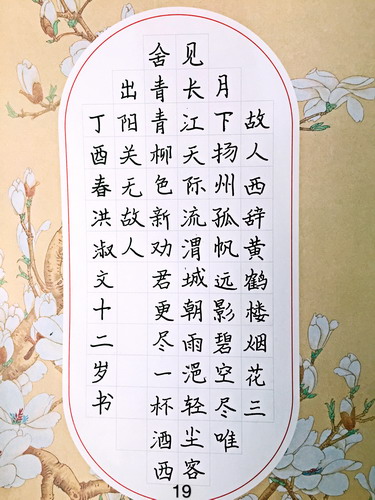 故人西辞黄鹤楼烟花三
月下扬州孤帆远影碧空尽唯
见长江天际流渭城朝雨浥轻尘客
舍青青柳色新劝君更尽一杯酒西
出阳关无故人
丁酉春洪淑文十二岁书
19